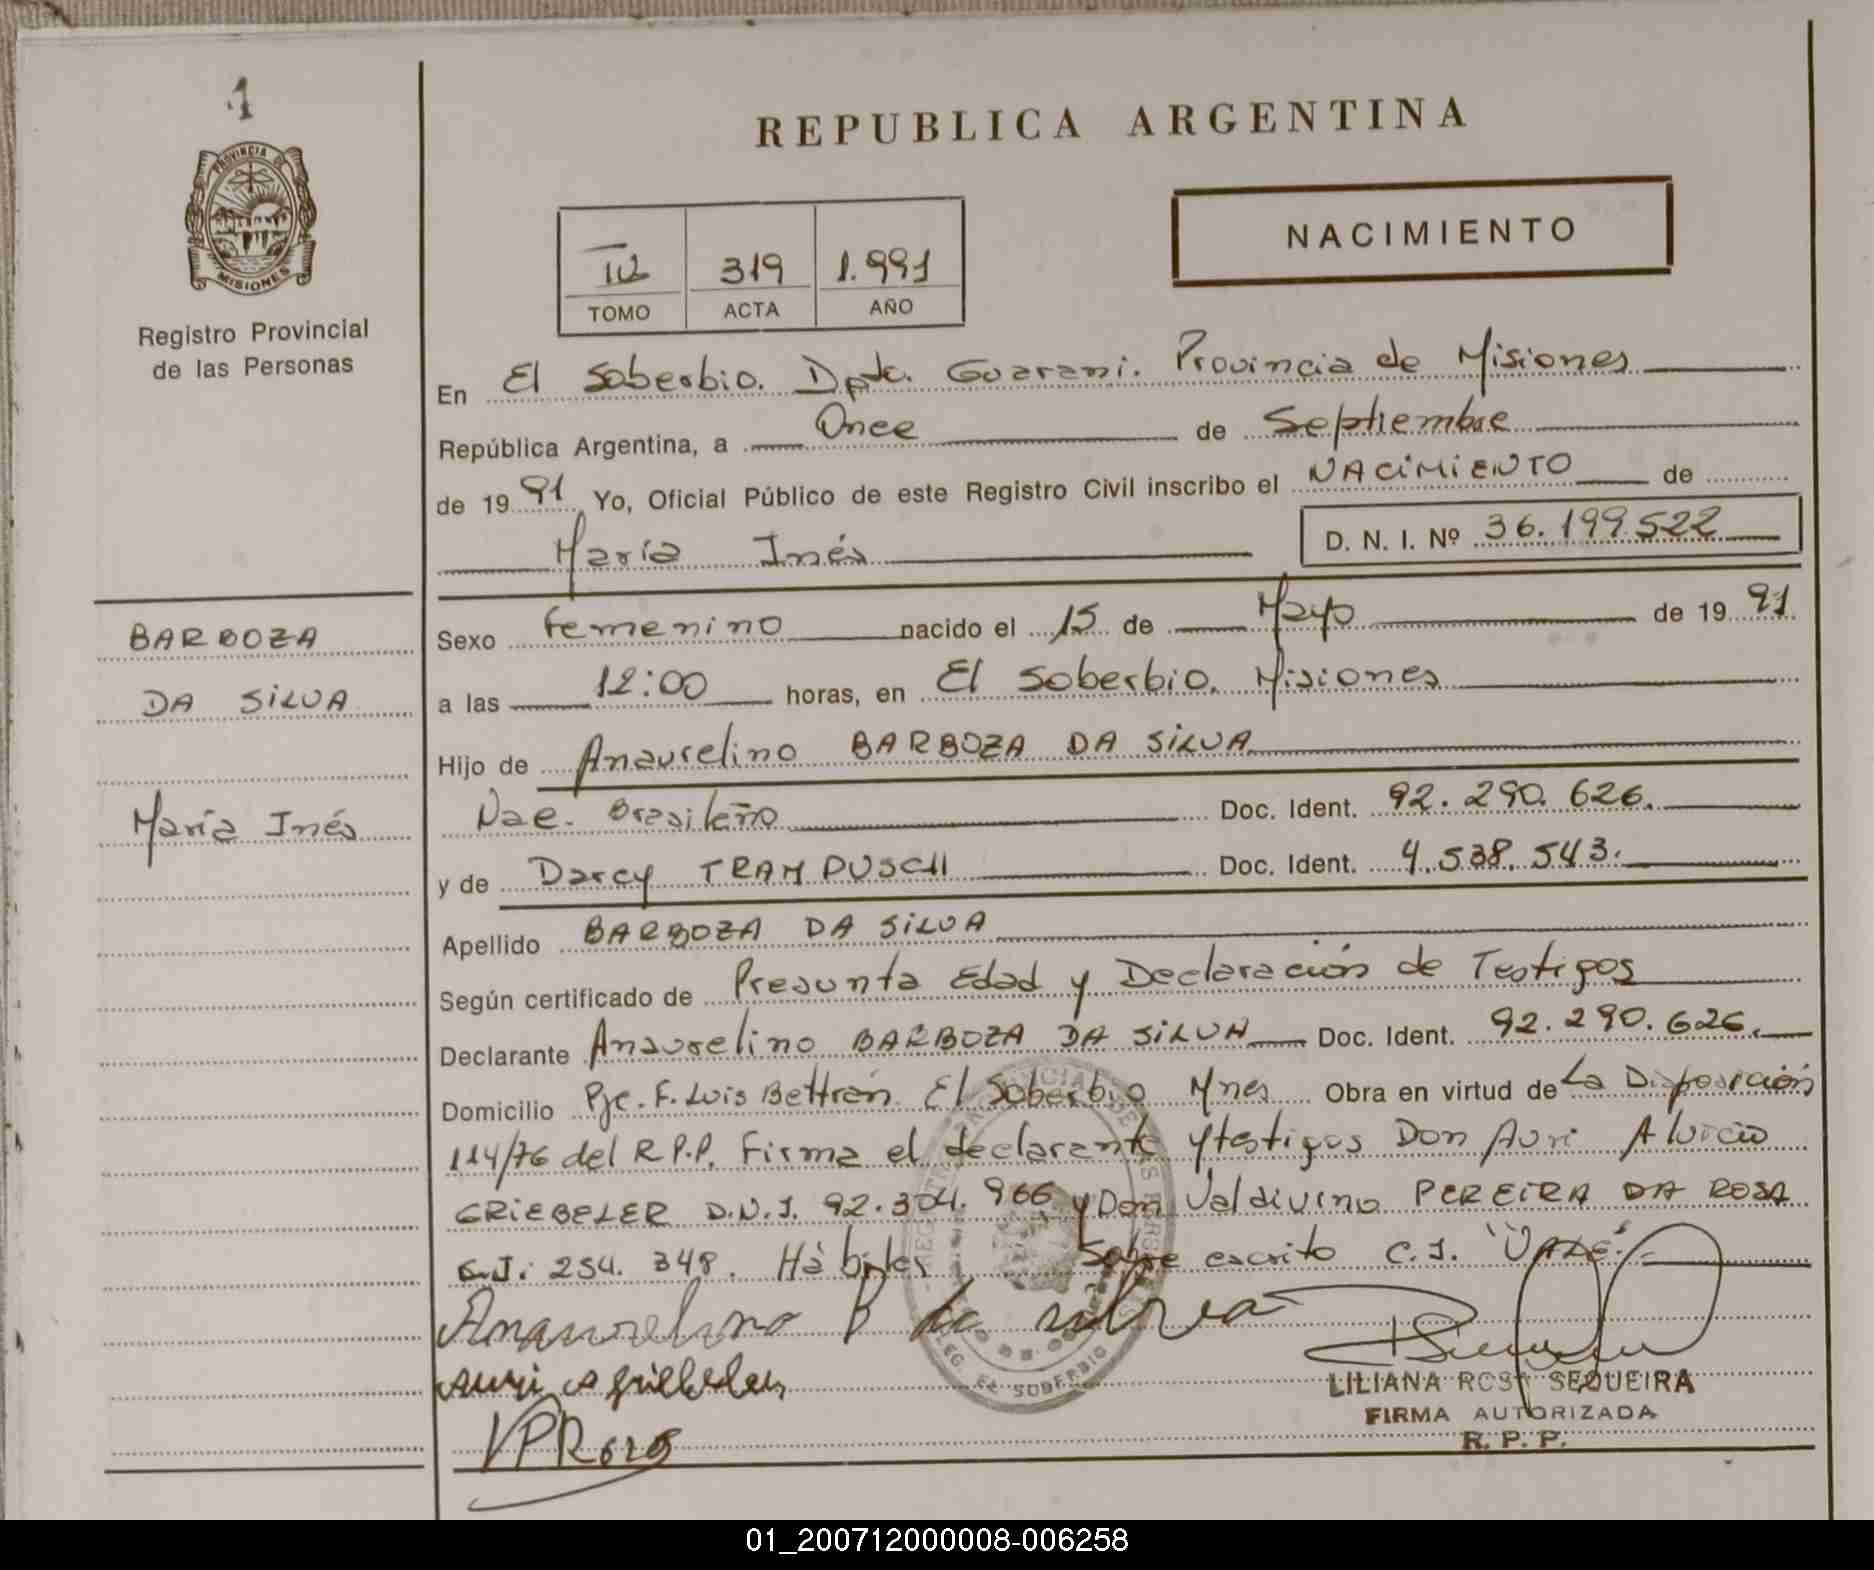 1
PROVINCIA DE
MISIONES
Registro Provincial
de las Personas
BARBOZA
DA SILVA
María Inés
REPUBLICA ARGENTINA
NACIMIENTO
IV 319 1.991
TOMO ACTA AÑO
En El Soberbio. Dpto. Guarani. Provincia de Misiones
República Argentina, a Once de Septiembre
de 19 91 Yo, Oficial Público de este Registro Civil inscribo el NACIMIENTO de
María Inés D. N. I. Nº 36.199.522
Sexo Femenino nacido el 15 de Mayo de 19 91
a las 12:00 horas, en El Soberbio. Misiones
Hijo de Anaurelino BARBOZA DA SILVA
Nac. Brasileño Doc. Ident. 92.290.626.
y de Darcy TRAMPUSCH Doc. Ident. 4.538.543.
Apellido BARBOZA DA SILVA
Según certificado de Presunta Edad y Declaración de Testigos
Declarante Anaurelino BARBOZA DA SILVA Doc. Ident. 92.290.626.
Domicilio Pje. F. Luis Beltrán El Soberbio Mnes Obra en virtud de La Disposición
114/76 del R.P.P. Firma el declarante y testigos Don Auri Aluicio
GRIEBELER D.N.I. 92.304.966 y Don Valdivino PEREIRA DA ROSA
C.I. 254.348. Hábiles Sobre escrito C.I. "VALE".
Anaurelino B da silva
auri a griebeler
VPRosa
DELEG. EL SOBERBIO
LILIANA ROSA SEQUEIRA
FIRMA AUTORIZADA
R. P. P.
01_200712000008-006258